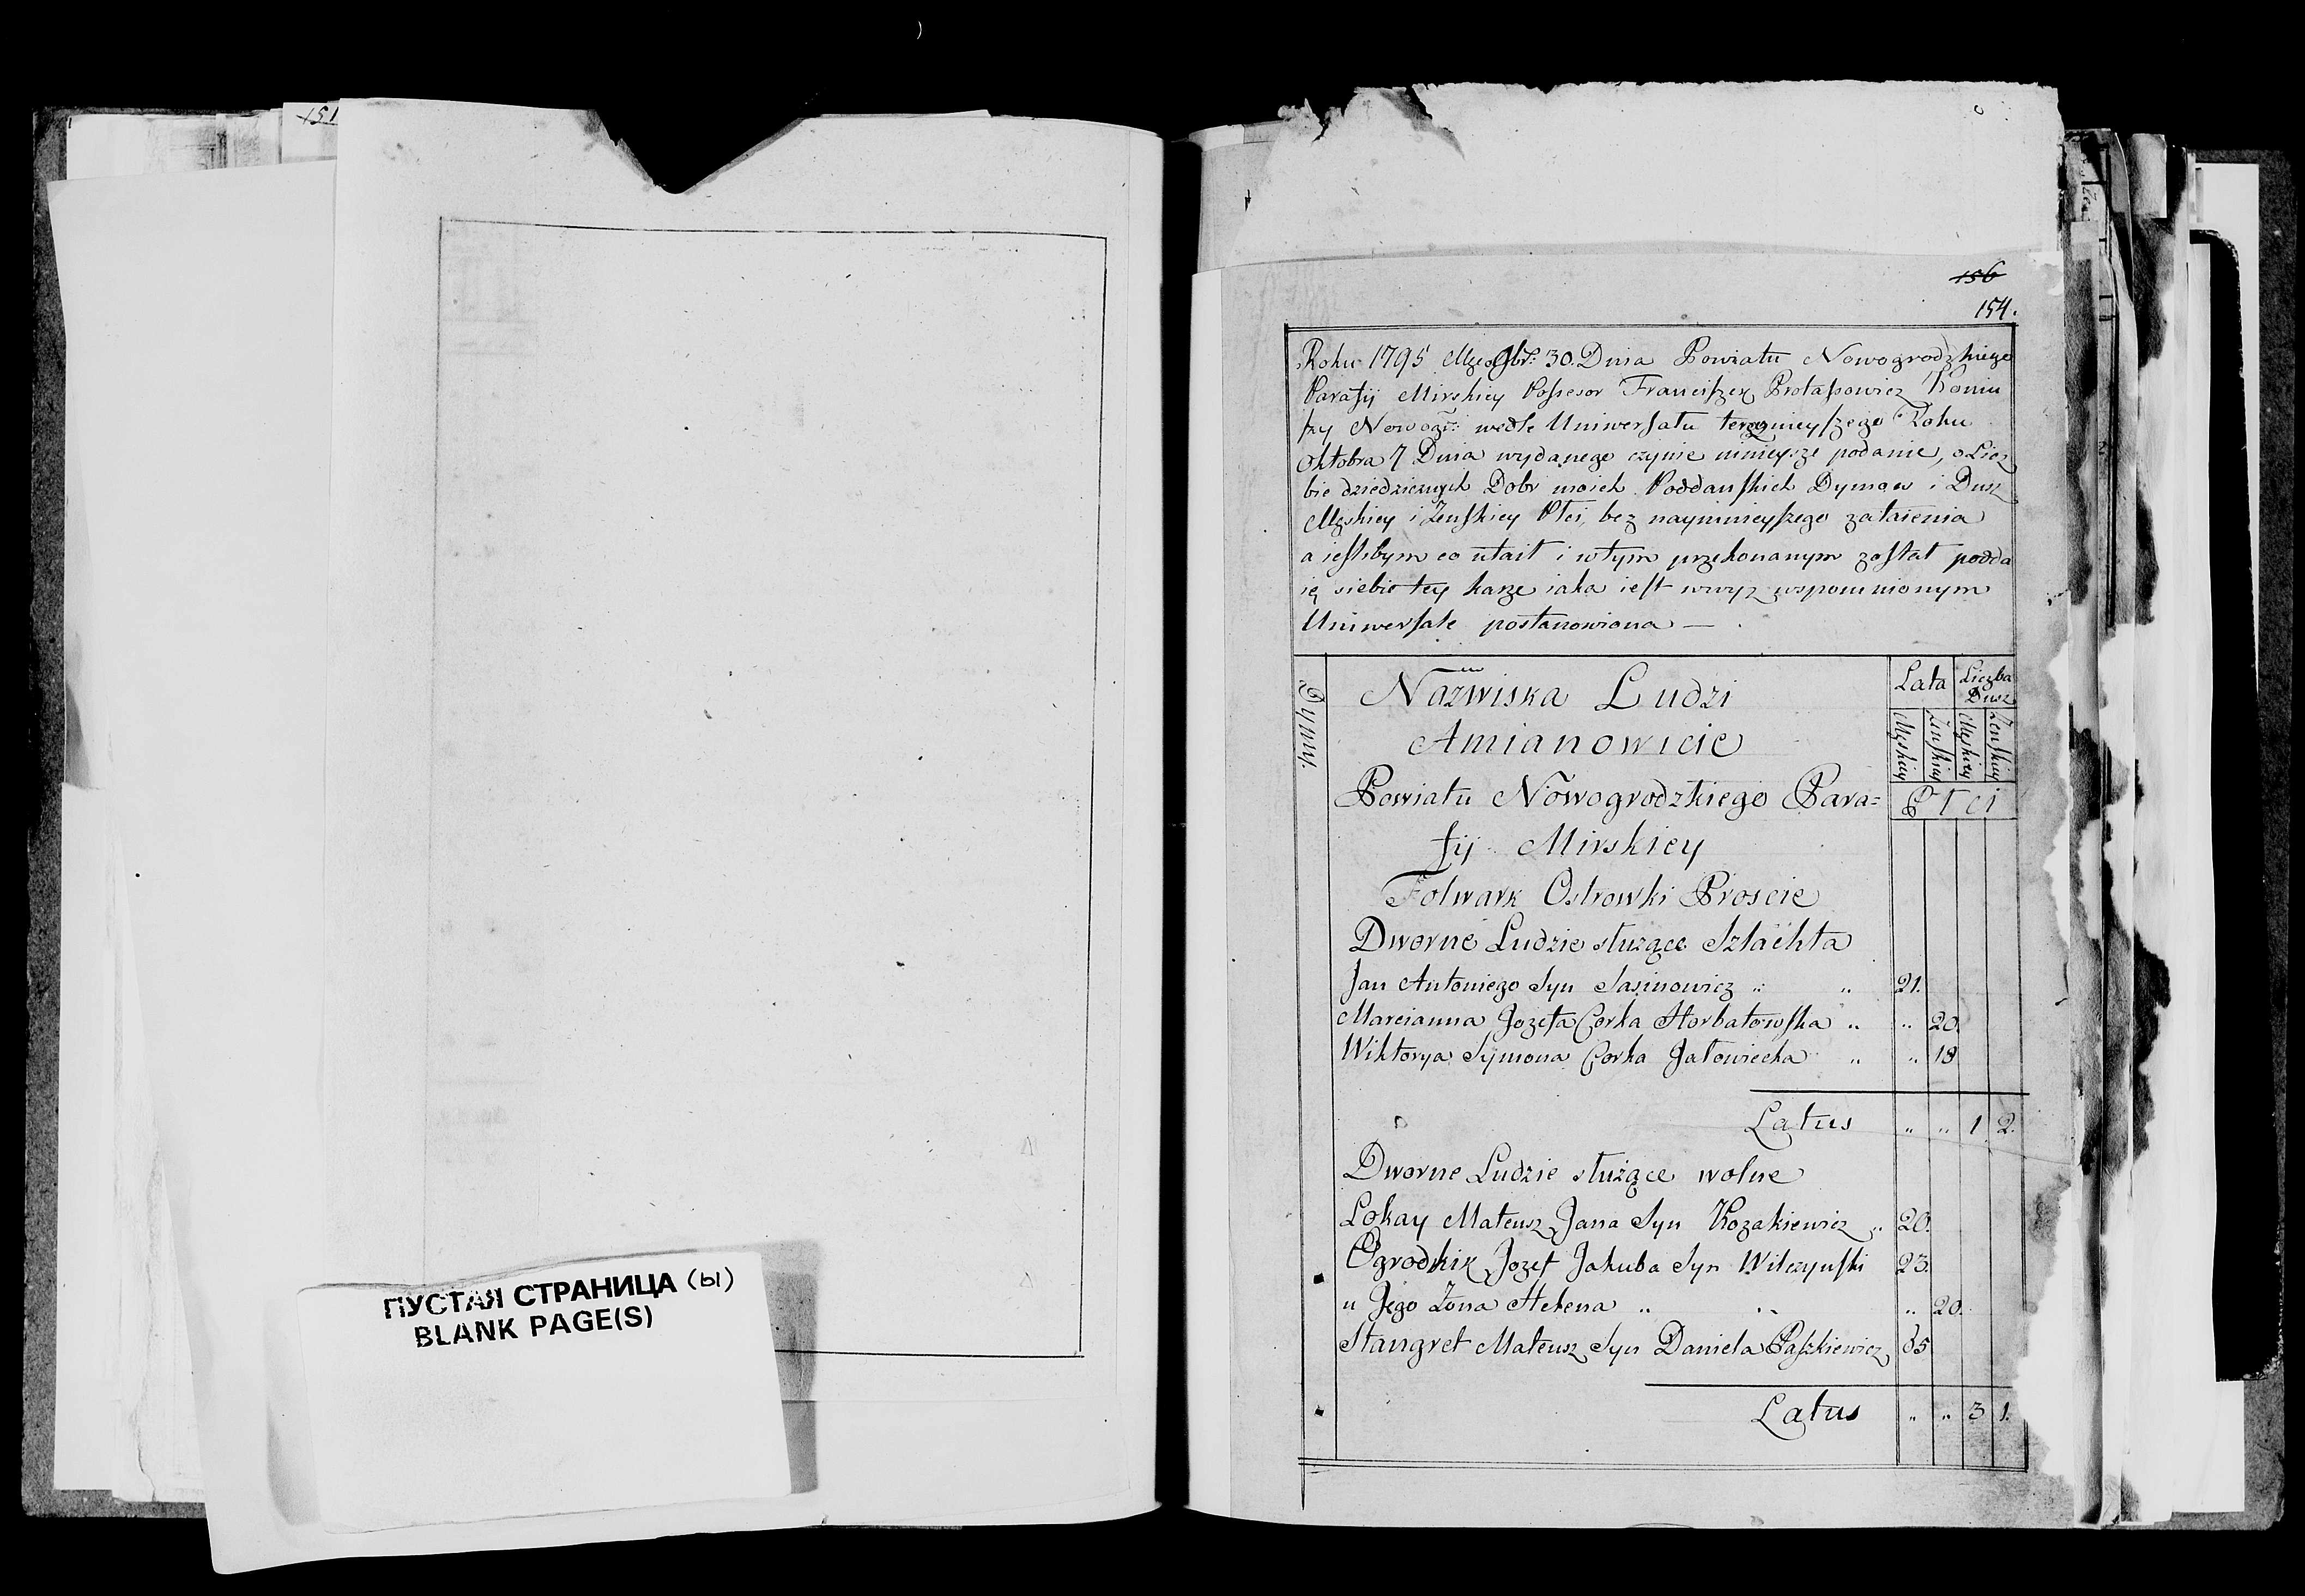 151
ПУСТАЯ СТРАНИЦА (ы)
BLANK PAGE(S)
156
154.
Roku 1795 Mca 9br: 30. Dnia Powiatu Nowogrodzkiego
Parafij Mirskiey Possesor Franciszek Protassowicz Koniu
szy Nowogr: wedle Uniwersału teraznieyszego Roku
Oktobra 7 Dnia wydanego czynie ninieysze podanie, o Licz
bie dziedzicznych Dobr moich Poddanskich Dymow i Dusz
Męskiey i Zenskiey Płci, bez naymnieyszego zataienia
a ieslibym co utait i wtym przekonanym został podda
ię siebie tey karze iaka iest wwyz wspomnionym
Uniwersale postanowiona —
Dymy.
Nazwiska Ludzi
Amianowicie
Powiatu Nowogrodzkiego Para=
fij Mirskiey
Lata
Liczba Dusz
Męskiey
Zenskiey
Męskiey
Zenskiey
Płci
Folwark Ostrowki Proscie
Dworne Ludzie służące Szlachta
Jan Antoniego Syn Sasinowicz „ „ 21.
Marcianna Jozefa Corka Horbatowska „ „ 20.
Wiktorya Symona Corka Jatowiecka „ „ 18
Latus „ „ 1 2.
Dworne Ludzie służące wolne
Lokay Mateusz Jana Syn Kozakiewicz „ 20.
Ogrodnik Jozef Jakuba Syn Wilczynski 23.
u Jego Zona Helena „ „ „ 20.
Stangret Mateusz Syn Daniela Paszkiewicz 35
Latus „ „ 3 1.